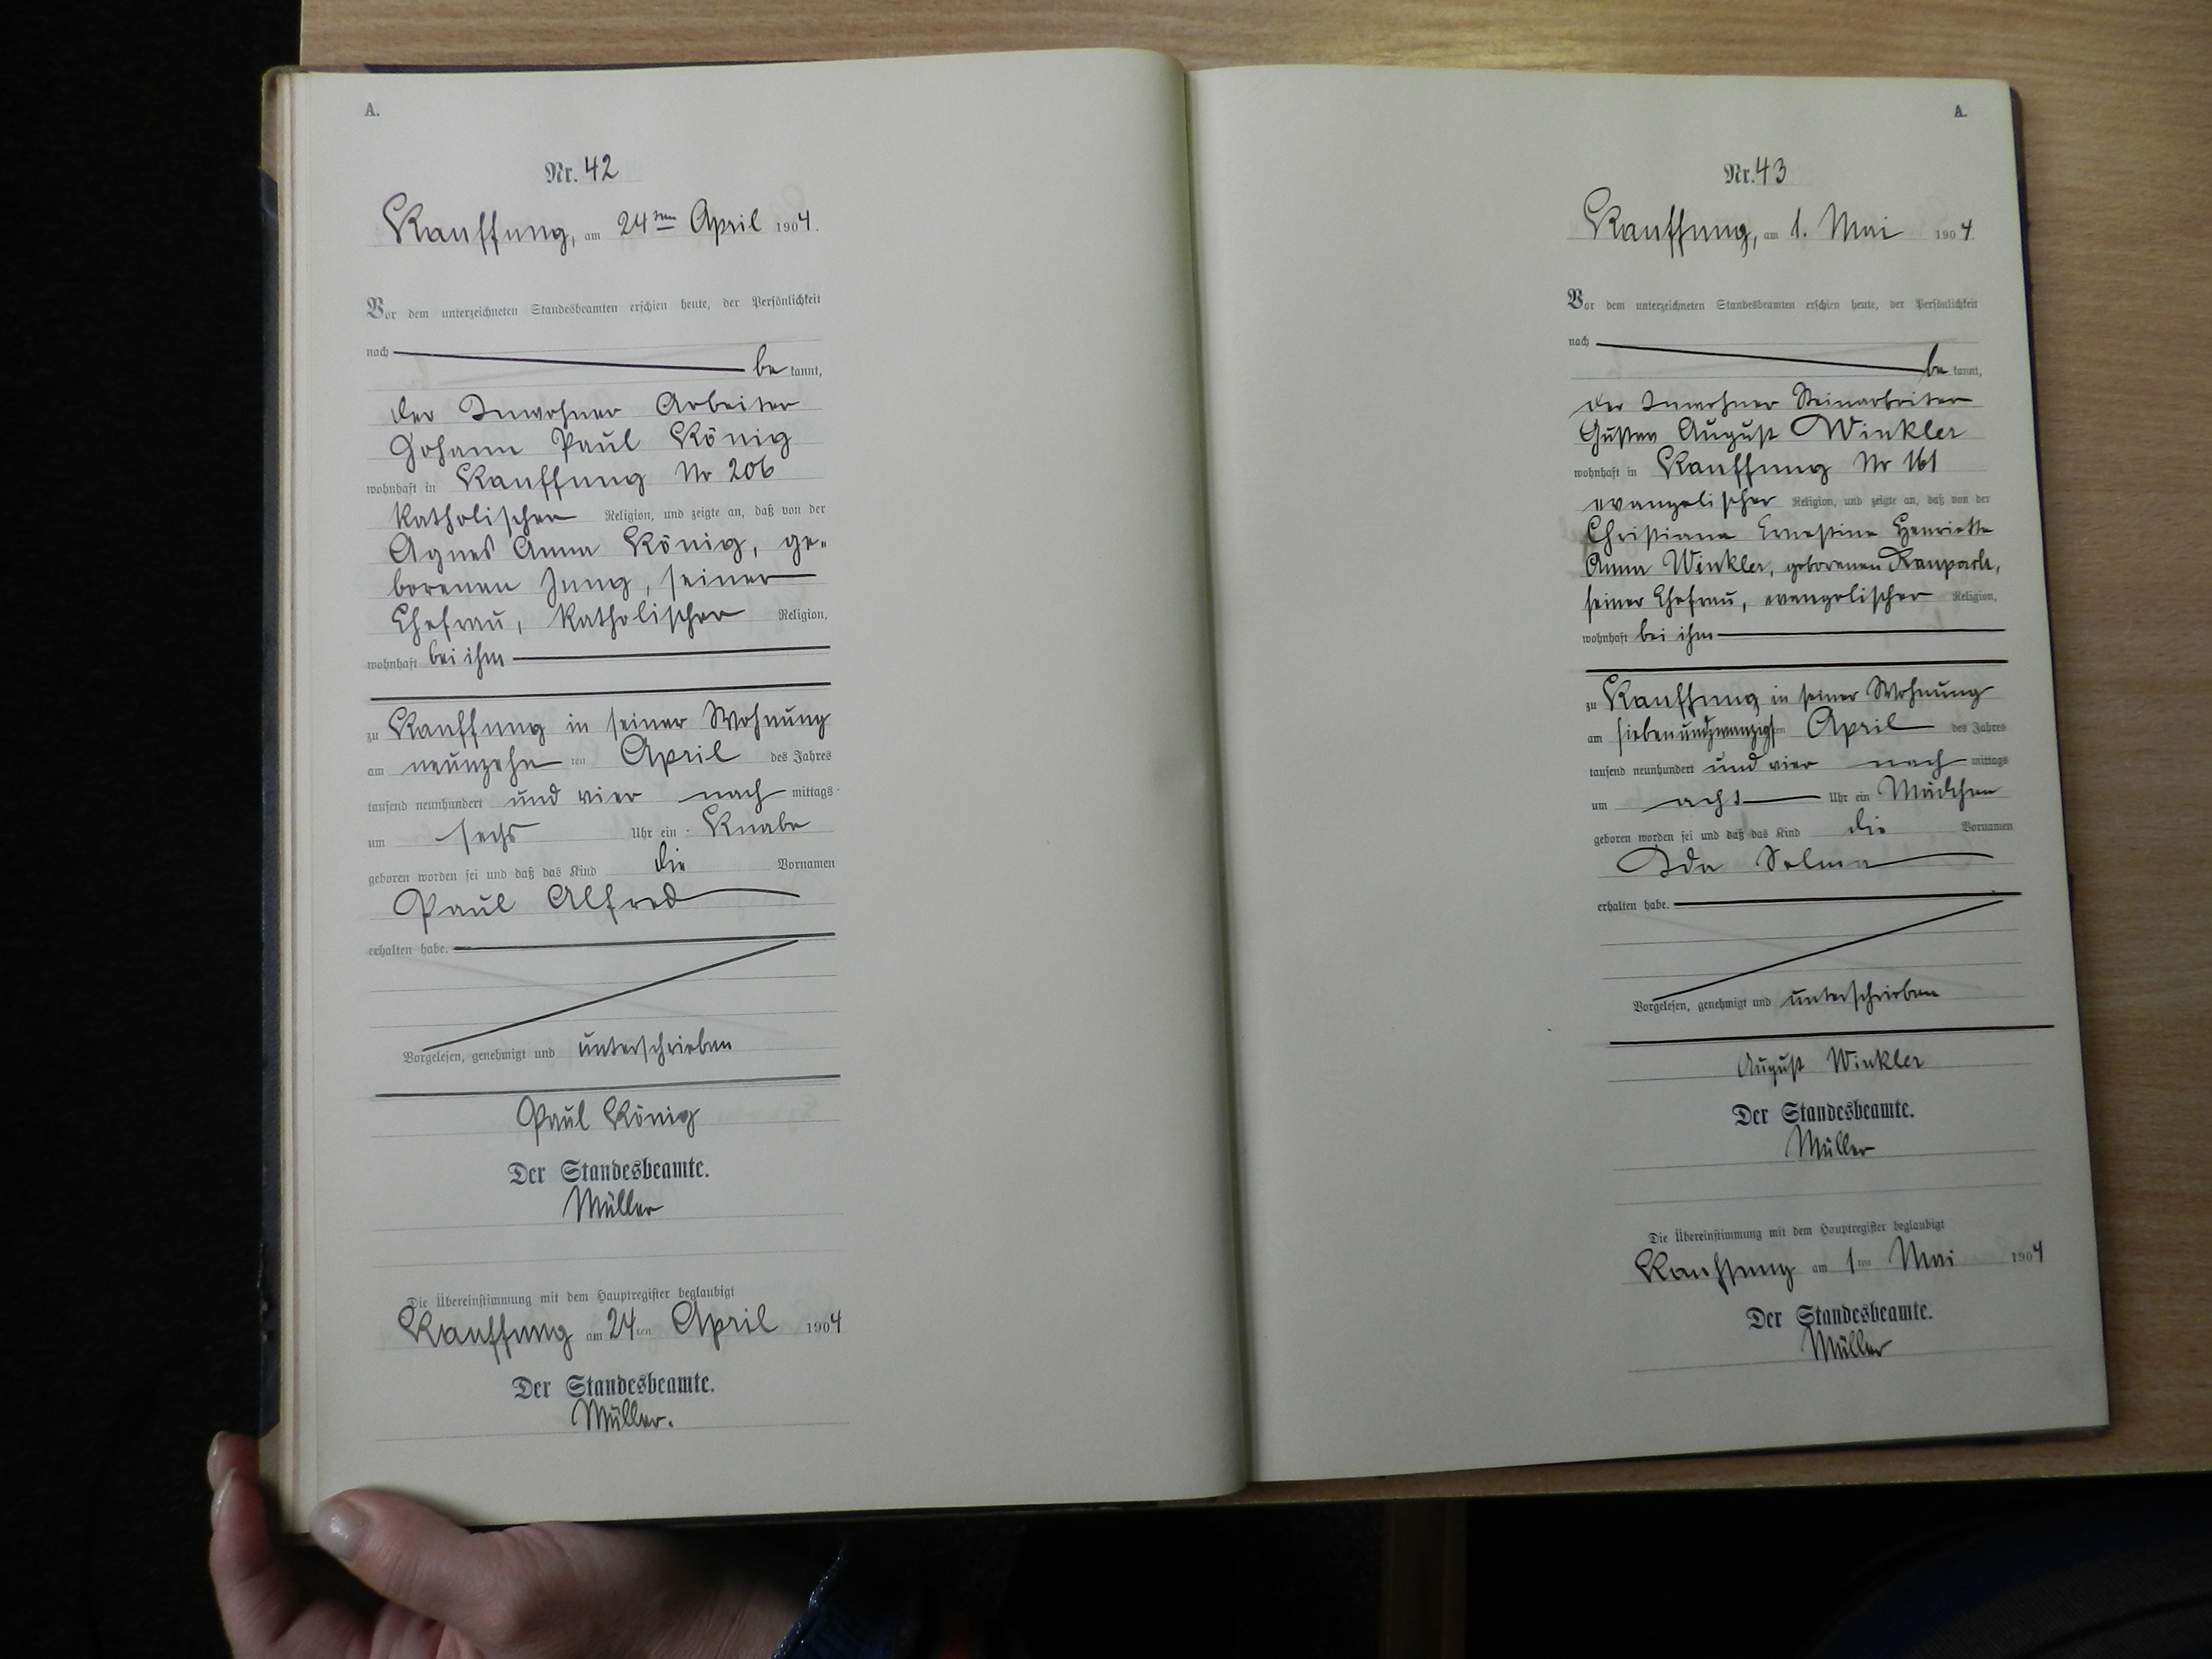 A.
Nr. 42
Kauffung, am 24ten April 1904.
Vor dem unterzeichneten Standesbeamten erschien heute, der Persönlichkeit
nach be kannt,
der Inwohner Arbeiter
Johann Paul König
wohnhaft in Kauffung Nr 206
katholischer Religion, und zeigte an, daß von der
Agnes Anna König, ge-
borenen Jung, seiner
Ehefrau, katholischer Religion,
wohnhaft bei ihm
zu Kauffung in seiner Wohnung
am neunzehn ten April des Jahres
tausend neunhundert und vier nach mittags
um sechs Uhr ein Knabe
geboren worden sei und daß das Kind die Vornamen
Paul Alfred
erhalten habe.
Vorgelesen, genehmigt und unterschrieben
Paul König
Der Standesbeamte.
Müller
Die Übereinstimmung mit dem Hauptregister beglaubigt
Kauffung am 24ten April 1904
Der Standesbeamte.
Müller.
A.
Nr. 43
Kauffung, am 1. Mai 1904.
Vor dem unterzeichneten Standesbeamten erschien heute, der Persönlichkeit
nach be kannt,
der Inwohner Steinarbeiter
Gustav August Winkler
wohnhaft in Kauffung Nr 161
evangelischer Religion, und zeigte an, daß von der
Christiane Ernestine Henriette
Anna Winkler, geborenen
seiner Ehefrau, evangelischer Religion,
wohnhaft bei ihm
zu Kauffung in seiner Wohnung
am siebenundzwanzigsten April des Jahres
tausend neunhundert und vier nach mittags
um acht Uhr ein Mädchen
geboren worden sei und daß das Kind die Vornamen
Ida Selma
erhalten habe.
Vorgelesen, genehmigt und unterschrieben
August Winkler
Der Standesbeamte.
Müller
Die Übereinstimmung mit dem Hauptregister beglaubigt
Kauffung am 1ten Mai 1904
Der Standesbeamte.
Müller